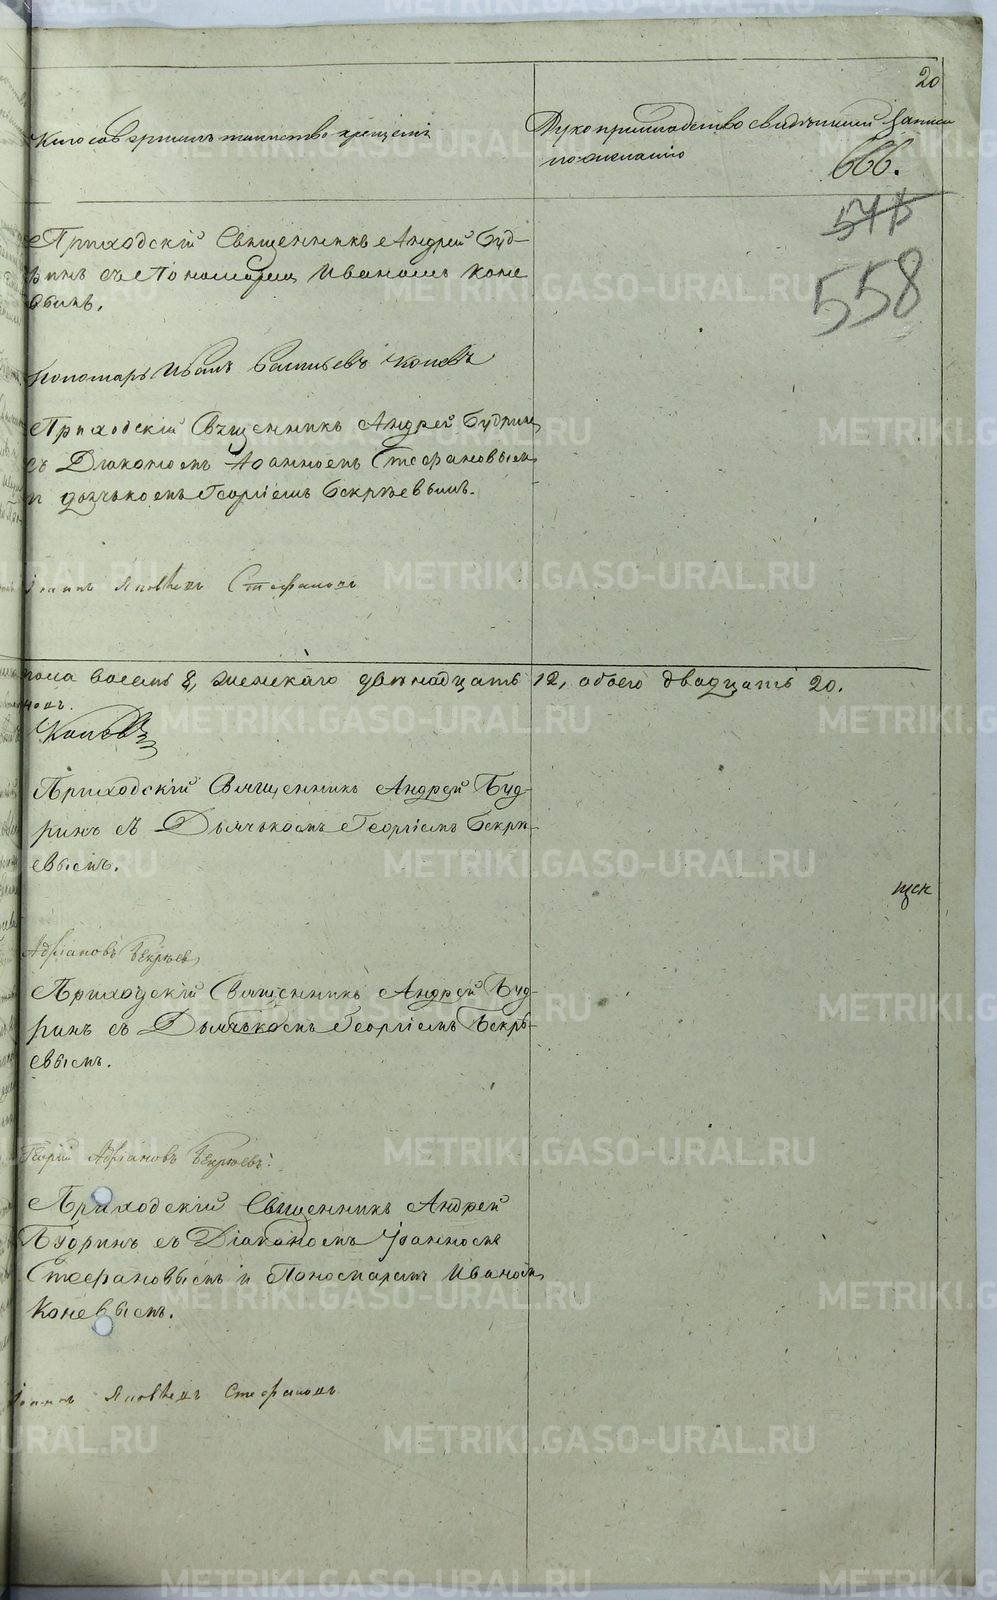 20
Кто совершалъ таинство крещенiя
Рукоприкладство свидѣтелей записи
по желанiю
666.
558
Приходскiй Священникъ Андрей Буд-
ринъ съ Пономаремъ Иваномъ Коне
вымъ.
Пономарь Иванъ Васильевъ Коневъ
Приходскiй Священникъ Андрей Будринъ
съ Дiакономъ Iоанномъ Стефановымъ
и дьячькомъ Георгiемъ Бекрѣевымъ.
Iоаннъ Яковлевъ Стефановъ
пола восемь 8, женскаго двѣнадцать 12, обоего двадцать 20.
Коневъ
Приходскiй Священникъ Андрей Буд-
ринъ съ Дьячькомъ Георгiемъ Бекрѣ-
евымъ.
Адрiановъ Бекрѣевъ
Приходскiй Священникъ Андрей Буд-
ринъ съ Дьячькомъ Георгiемъ Бекрѣ-
евымъ.
Георгiй Адрiановъ Бекрѣевъ.
Приходскiй Священникъ Андрей
Будринъ съ Дiакономъ Iоанномъ
Стефановымъ и Пономаремъ Иваномъ
Коневымъ.
Iоаннъ Яковлевъ Стефановъ
METRIKI.GASO-URAL.RU